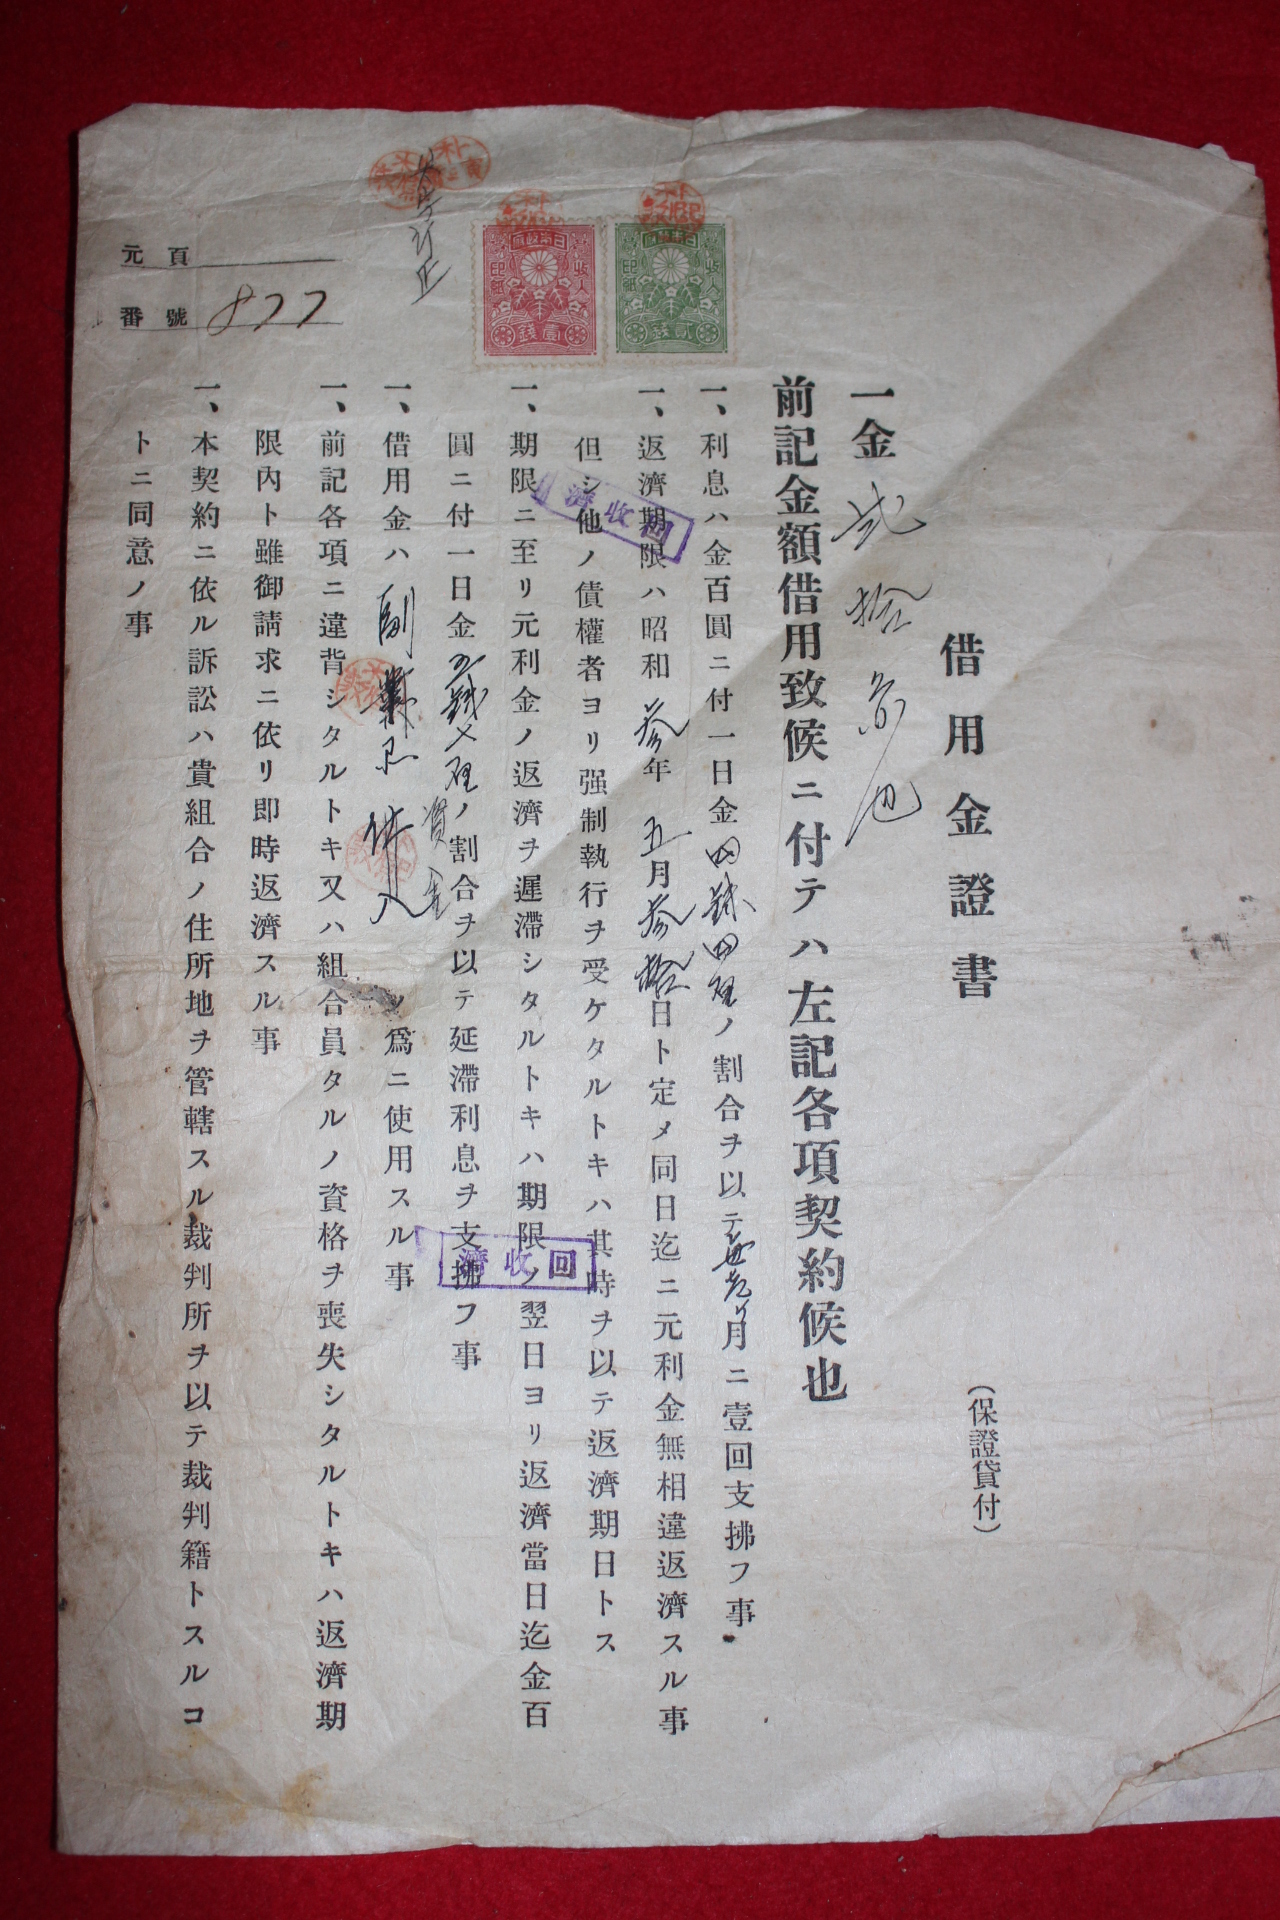 借用金證書
(保證貸付)
一金 貳拾 也
前記金額借用致候ニ付テハ左記各項契約候也
一、利息ハ金百圓ニ付一日金四錢四厘ノ割合ヲ以テ 月ニ壹回支拂フ事
一、返濟期限ハ昭和參年五月參拾日ト定メ同日迄ニ元利金無相違返濟スル事
但シ他ノ債權者ヨリ强制執行ヲ受ケタルトキハ其時ヲ以テ返濟期日トス
一、期限ニ至リ元利金ノ返濟ヲ遲滯シタルトキハ期限ノ翌日ヨリ返濟當日迄金百
圓ニ付一日金五錢 厘ノ割合ヲ以テ延滯利息ヲ支拂フ事
一、借用金ハ副業 資金ノ爲ニ使用スル事
一、前記各項ニ違背シタルトキ又ハ組合員タルノ資格ヲ喪失シタルトキハ返濟期
限內ト雖御請求ニ依リ卽時返濟スル事
一、本契約ニ依ル訴訟ハ貴組合ノ住所地ヲ管轄スル裁判所ヲ以テ裁判籍トスルコ
トニ同意ノ事
元頁
番號 877
訂正
日本政府
收入印紙
貳錢
日本政府
收入印紙
壹錢
回收濟
回收濟